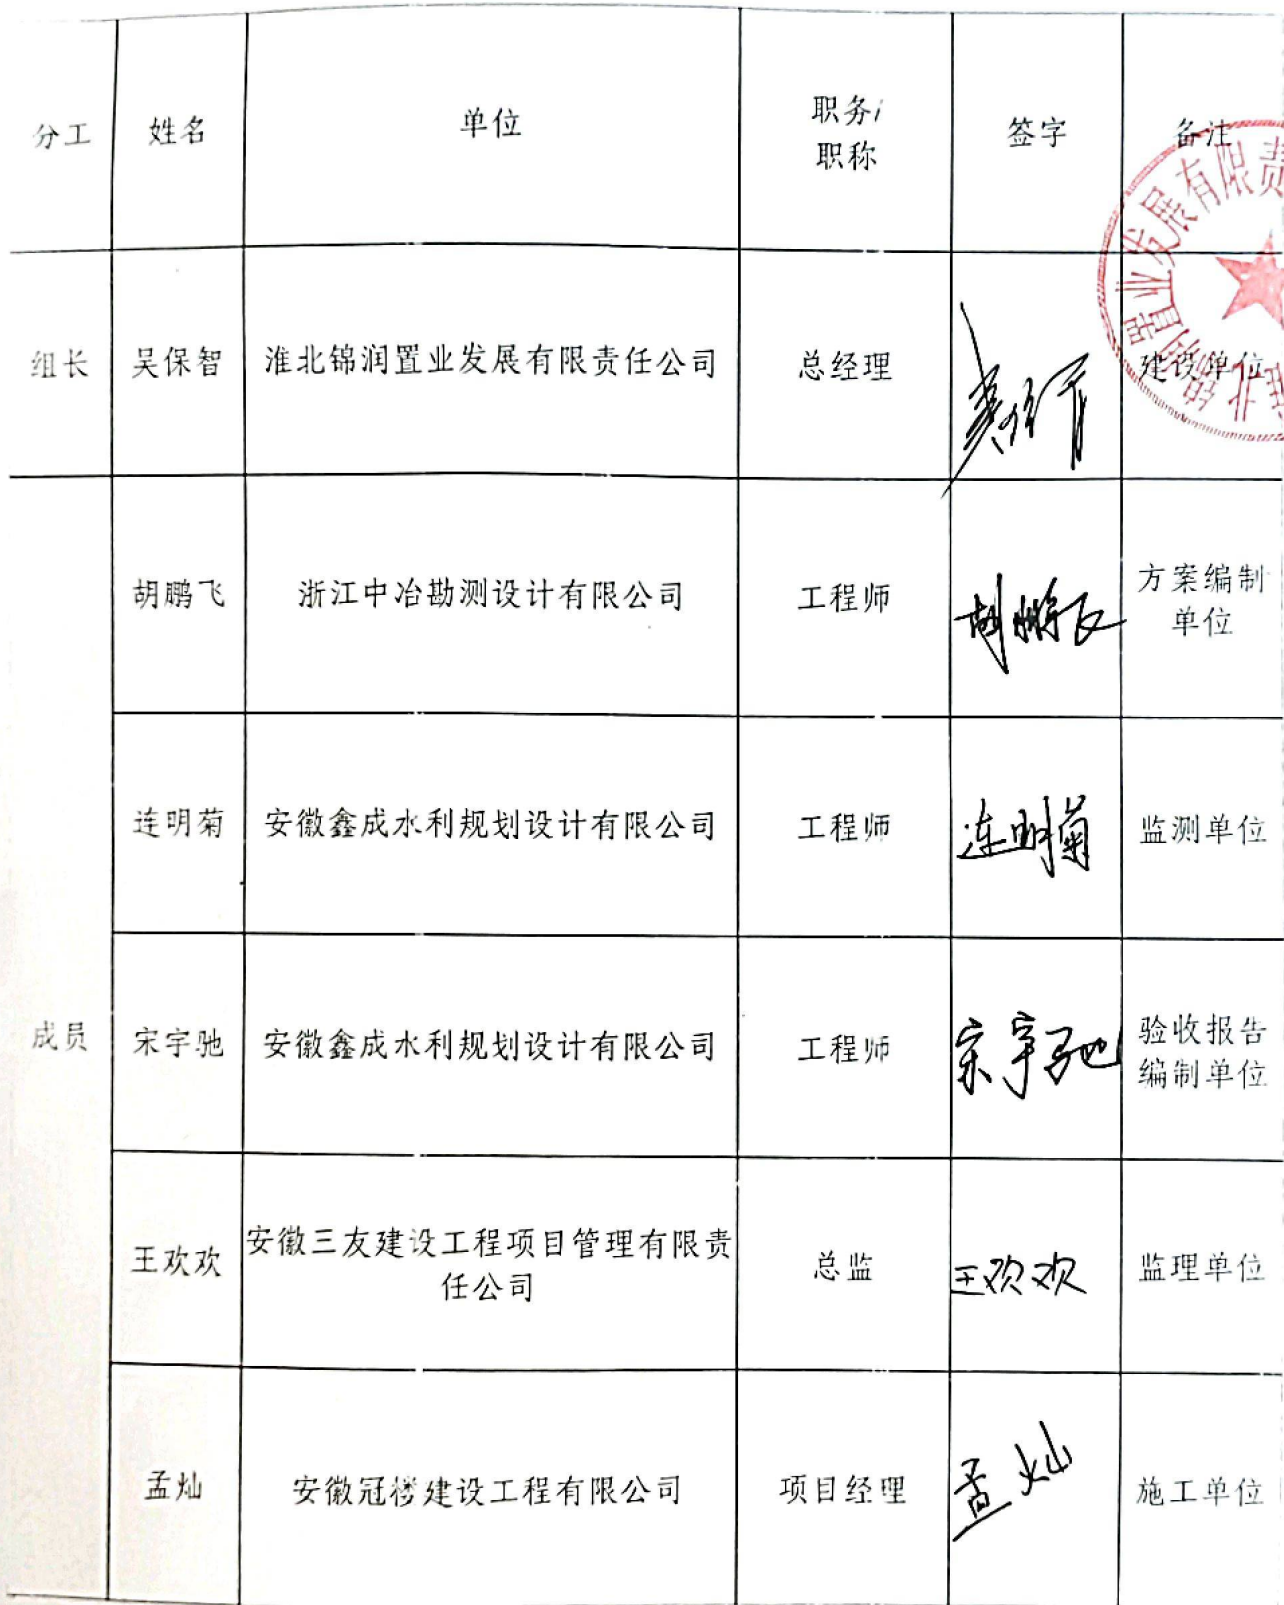 分工 姓名 单位 职务/ 签字 备注
职称
组长 吴保智 淮北锦润置业发展有限责任公司 总经理 建设单位
置业发展有限责
胡鹏飞 浙江中冶勘测设计有限公司 工程师 胡鹏飞 方案编制
单位
连明菊 安徽鑫成水利规划设计有限公司 工程师 连明菊 监测单位
成员 宋宇驰 安徽鑫成水利规划设计有限公司 工程师 宋宇驰 验收报告
编制单位
王欢欢 安徽三友建设工程项目管理有限责
任公司 总监 王欢欢 监理单位
孟灿 安徽冠楼建设工程有限公司 项目经理 孟灿 施工单位